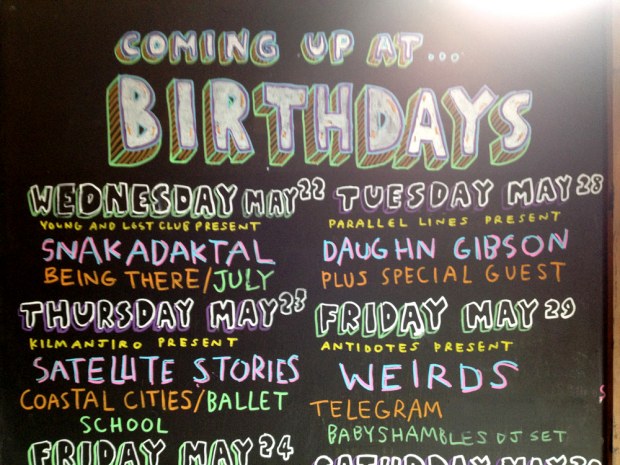 COMING UP AT...
BIRTHDAYS
WEDNESDAY MAY 22
YOUNG AND LOST CLUB PRESENT
SNAKADAKTAL
BEING THERE/JULY
THURSDAY MAY 23
KILMANJIRO PRESENT
SATELLITE STORIES
COASTAL CITIES/BALLET
SCHOOL
FRIDAY MAY 24
TUESDAY MAY 28
PARALLEL LINES PRESENT
DAUGHN GIBSON
PLUS SPECIAL GUEST
FRIDAY MAY 29
ANTIDOTES PRESENT
WEIRDS
TELEGRAM
BABYSHAMBLES DJ SET
SATURDAY MAY